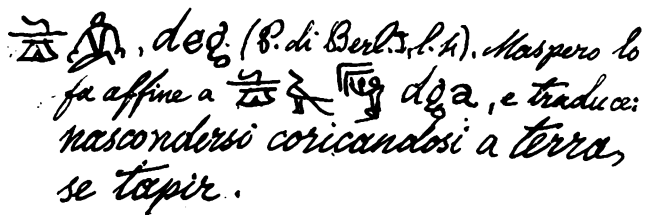 , deg. (P. di Berl. I, l. 4). Maspero lo
fa affine a dga, e traduce:
nascondersi coricandosi a terra,
se tapir.